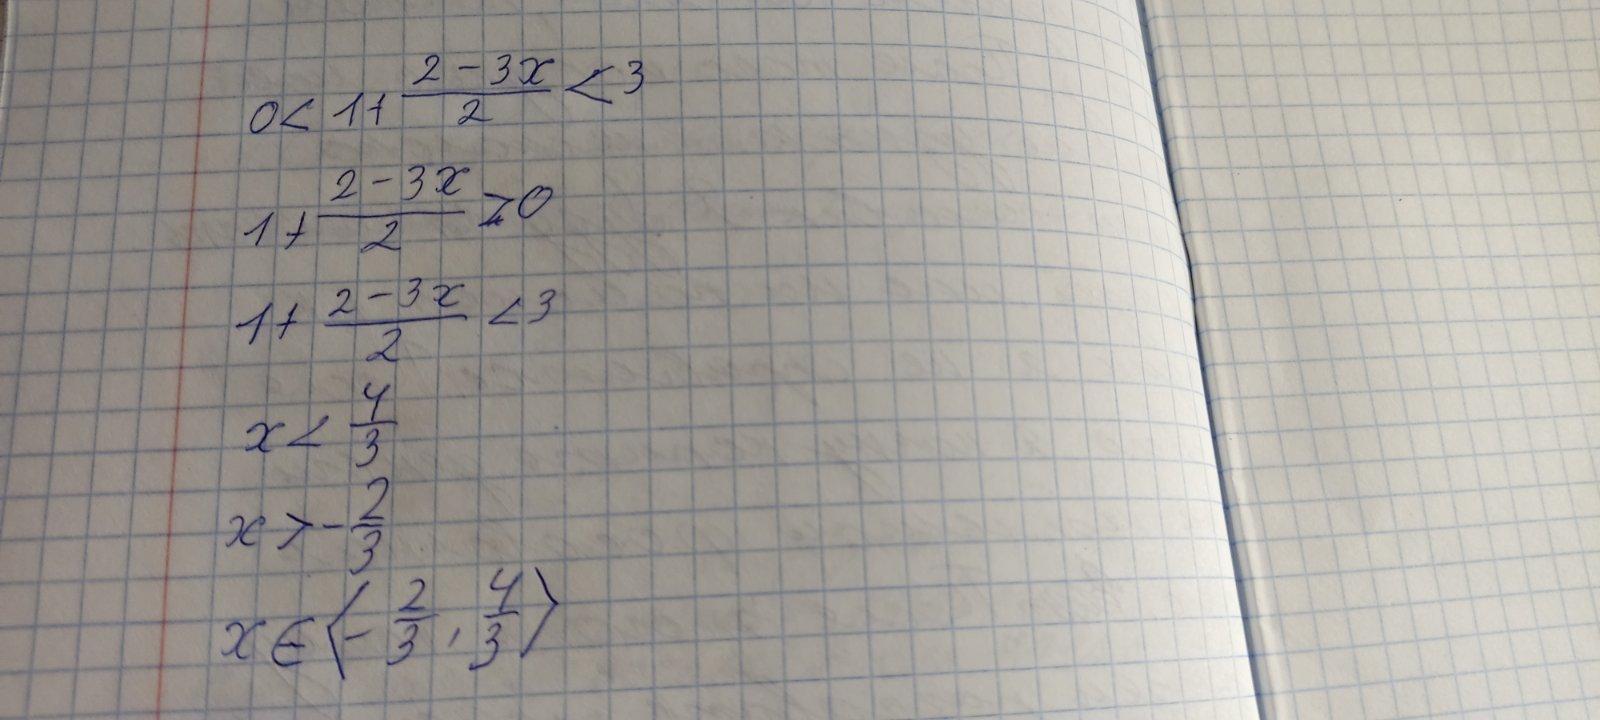 0 < 1 + (2 - 3x)/2 < 3
1 + (2 - 3x)/2 > 0
1 + (2 - 3x)/2 < 3
x < 4/3
x > - 2/3
x ∈ ⟨- 2/3, 4/3⟩